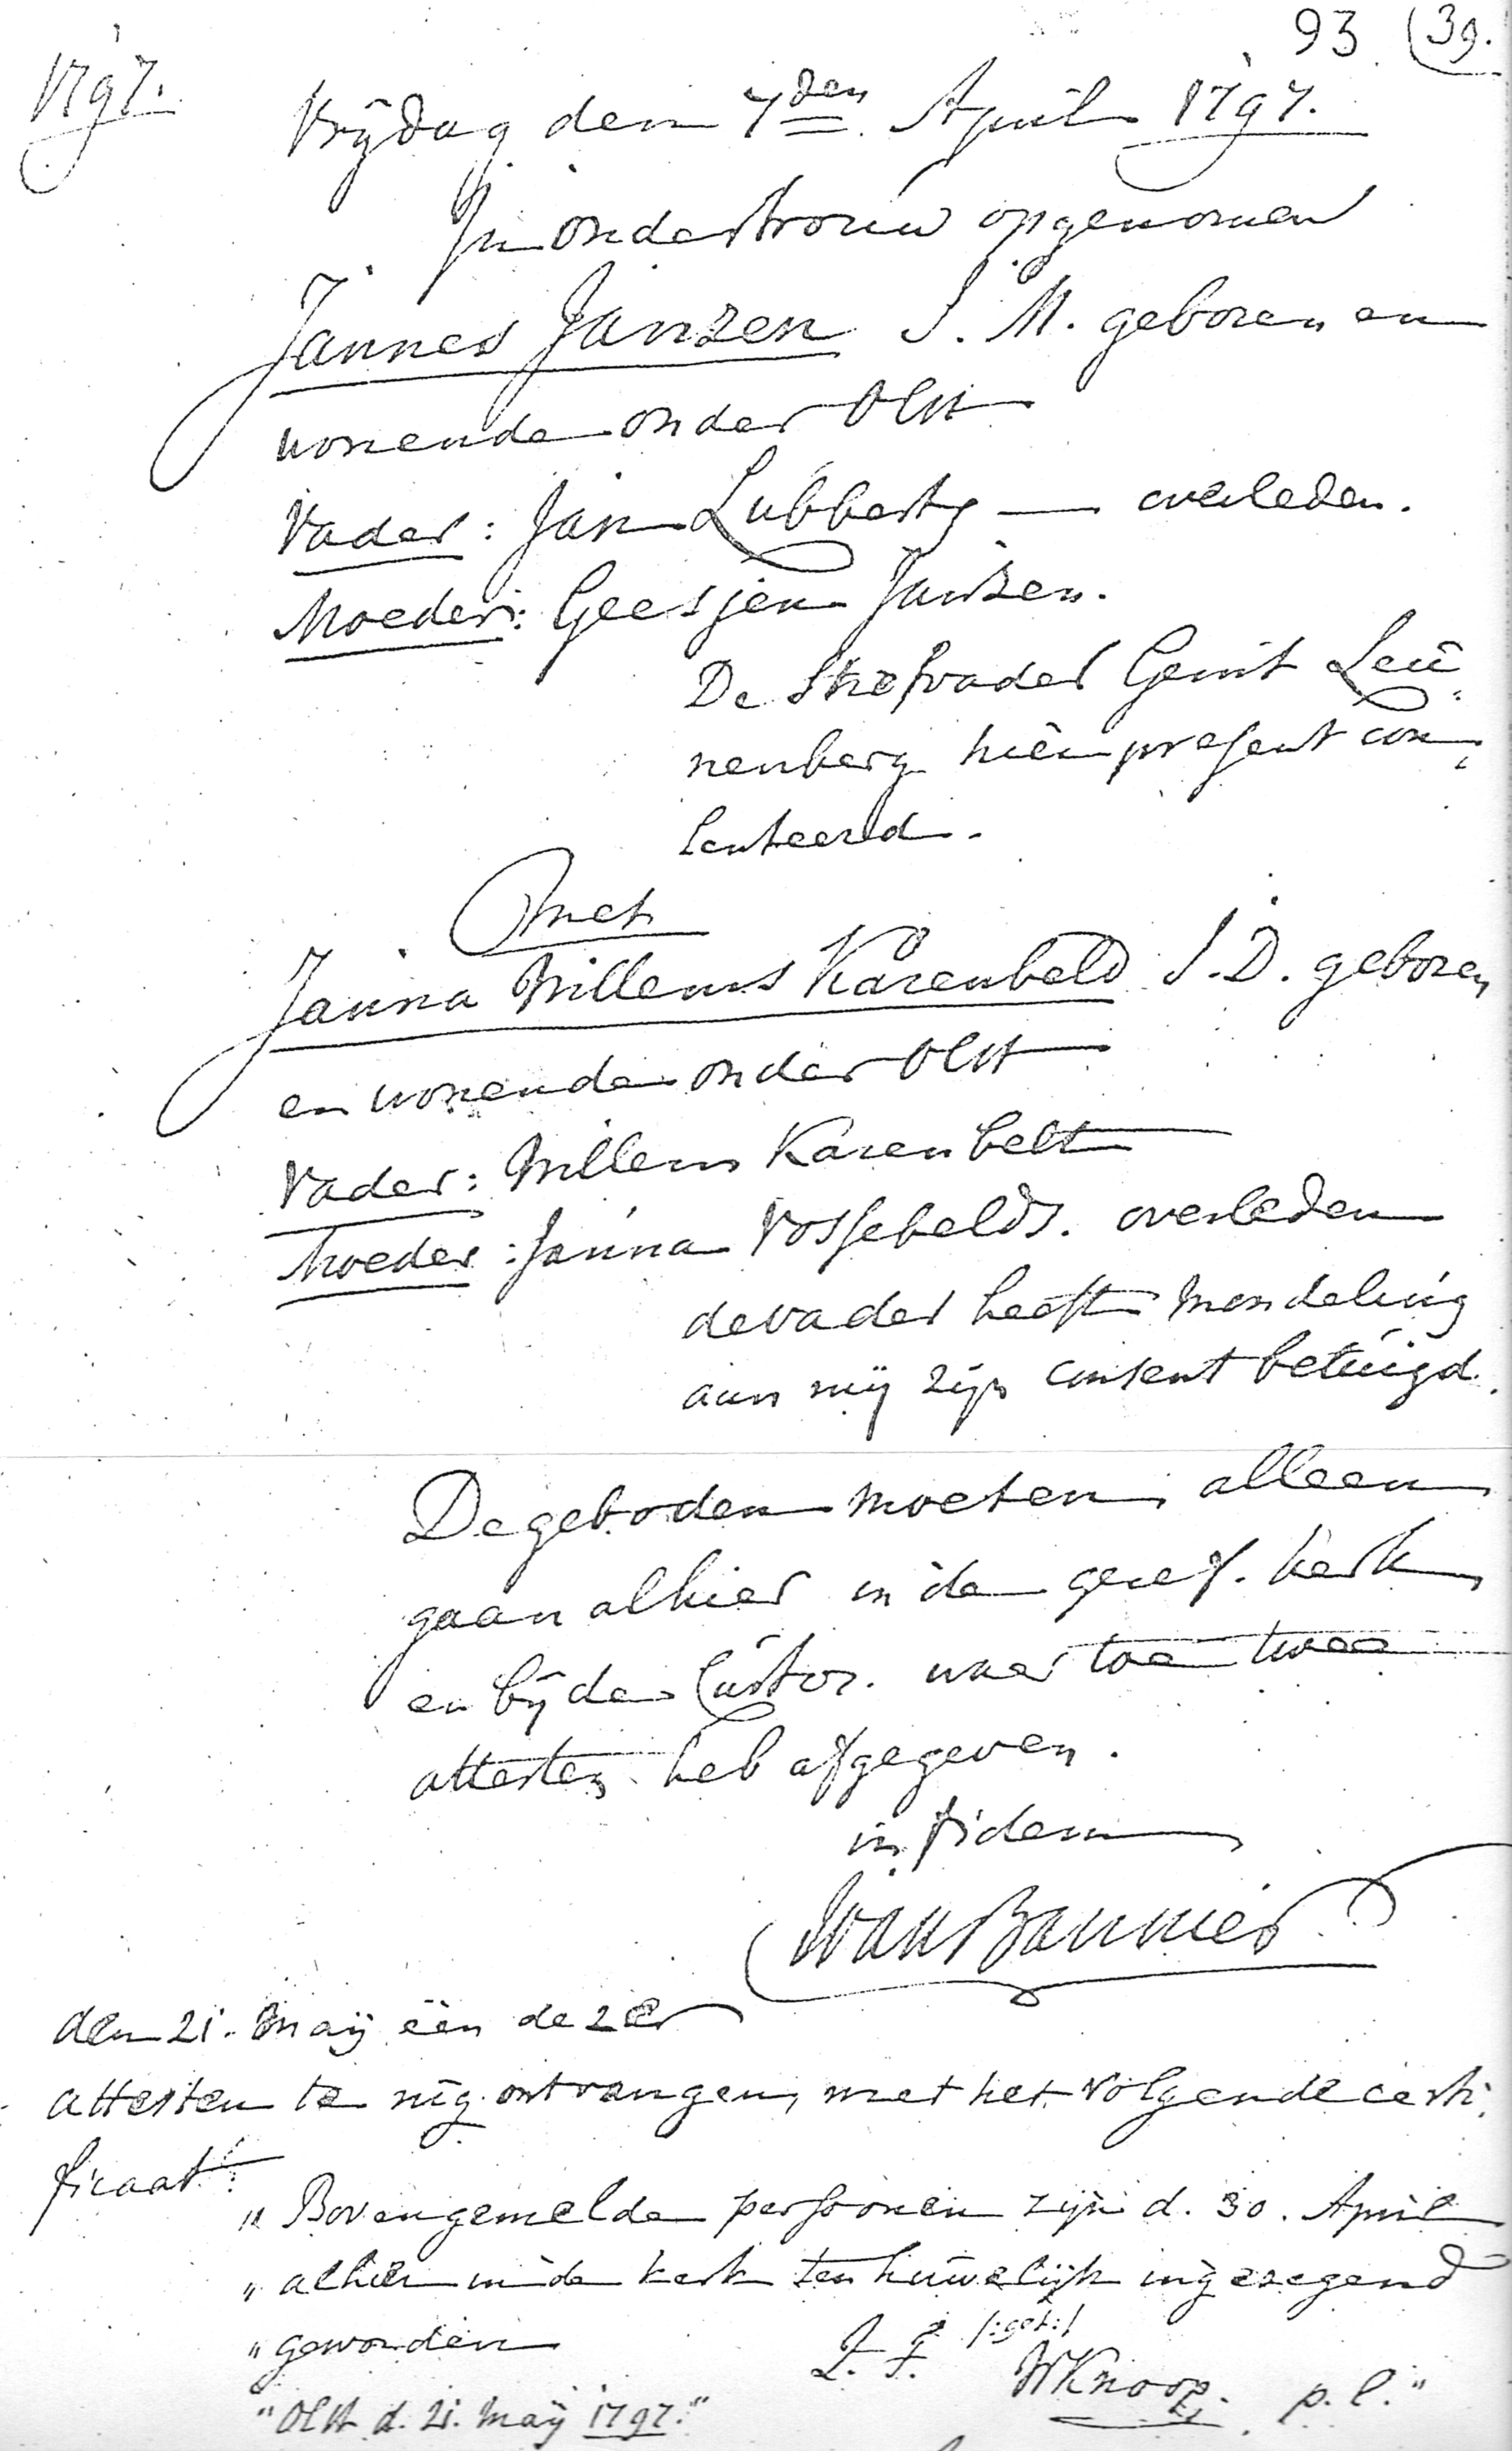 93 (39.
1797.
Vrijdag den 7den April 1797.
In ondertrouw opgenomen
Jannes Janzen J. M. geboren en
wonende onder Olst
Vader: Jan Lubberts — overleden.
Moeder: Geesjen Janzen.
De Stiefvader Gerrit Leu„
nenberg hier present con„
senteerd.
met
Janna Willems Karenbeld J. D. geboren
en wonende onder Olst
Vader: Willem Karenbelt
Moeder: Janna Vossebelds. overleden
de vader heeft mondeling
aan mij zijn consent betuigd.
De geboden moeten alleen
gaan alhier in de geref. kerk
en bij de Custor. waer toe twee
attesten heb afgegeven.
in fidem
den 21. Maij één dezer
attesten te rug ontvangen, met het volgende certi„
ficaat:
„ Bovengemelde persoonen zijn d. 30. April
„ alhier in de kerk ten huwelijk ingezegend
„ geworden
/:get:/
L. F. WKnoop. p. l."
"Olst d. 21. Maij 1797."